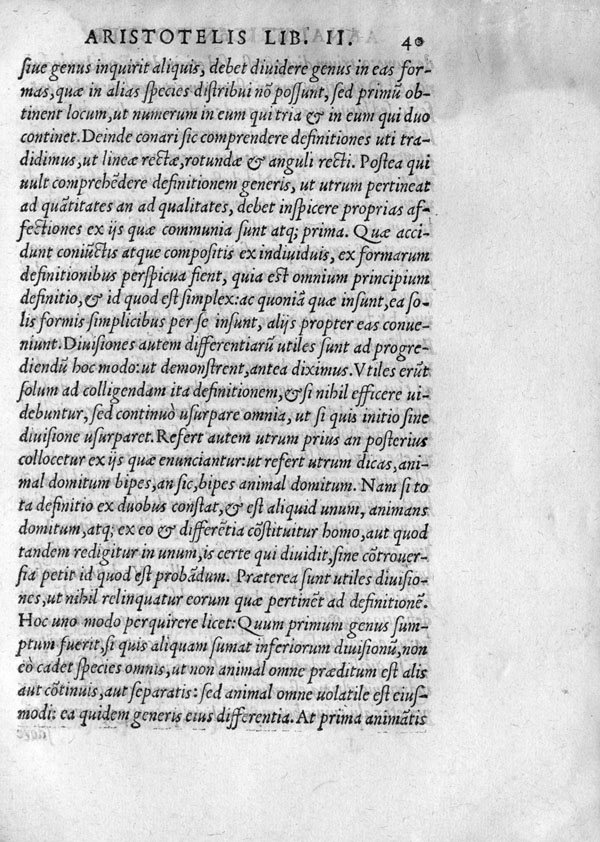 ARISTOTELIS LIB. II. 40
siue genus inquirit aliquis, debet diuidere genus in eas for-
mas, quæ in alias species distribui nō possunt, sed primū ob-
tinent locum, ut numerum in eum qui tria & in eum qui duo
continet. Deinde conari sic comprendere definitiones uti tra-
didimus, ut lineæ rectæ, rotundæ & anguli recti. Postea qui
uult comprehēdere definitionem generis, ut utrum pertineat
ad quātitates an ad qualitates, debet inspicere proprias af-
fectiones ex ijs quæ communia sunt atq; prima. Quæ acci-
dunt coniūctis atque compositis ex indiuiduis, ex formarum
definitionibus perspicua fient, quia est omnium principium
definitio, & id quod est simplex: ac quoniā quæ insunt, ea so-
lis formis simplicibus per se insunt, alijs propter eas conue-
niunt. Diuisiones autem differentiarū utiles sunt ad progre-
diendū hoc modo: ut demonstrent, antea diximus. Vtiles erūt
solum ad colligendam ita definitionem, & si nihil efficere ui-
debuntur, sed continuò usurpare omnia, ut si quis initio sine
diuisione usurparet. Refert autem utrum prius an posterius
collocetur ex ijs quæ enunciantur: ut refert utrum dicas, ani-
mal domitum bipes, an sic, bipes animal domitum. Nam si to
ta definitio ex duobus constat, & est aliquid unum, animans
domitum, atq; ex eo & differētia cōstituitur homo, aut quod
tandem redigitur in unum, is certe qui diuidit, sine cōtrouer-
sia petit id quod est probādum. Præterea sunt utiles diuisio-
nes, ut nihil relinquatur eorum quæ pertinēt ad definitionē.
Hoc uno modo perquirere licet: Quum primum genus sum-
ptum fuerit, si quis aliquam sumat inferiorum diuisionū, non
eò cadet species omnis, ut non animal omne præditum est alis
aut cōtinuis, aut separatis: sed animal omne uolatile est eius-
modi: ea quidem generis eius differentia. At prima animātis